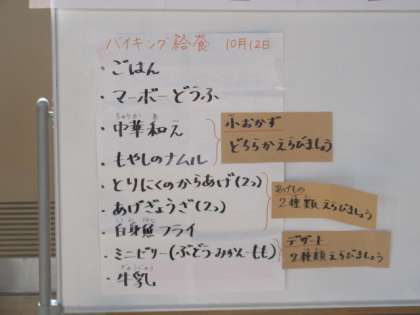 バイキング給食 10月12日
・ごはん
・マーボーどうふ
・中華和え
ちゅうか あ
小おかず
どちらかえらびましょう
・もやしのナムル
・とりにくのからあげ(2つ)
・あげぎょうざ(2つ)
・白身魚フライ
あげもの
2種類えらびましょう
・ミニゼリー(ぶどう・みかん・もも)
デザート
2種類えらびましょう
・牛乳
ぎゅうにゅう